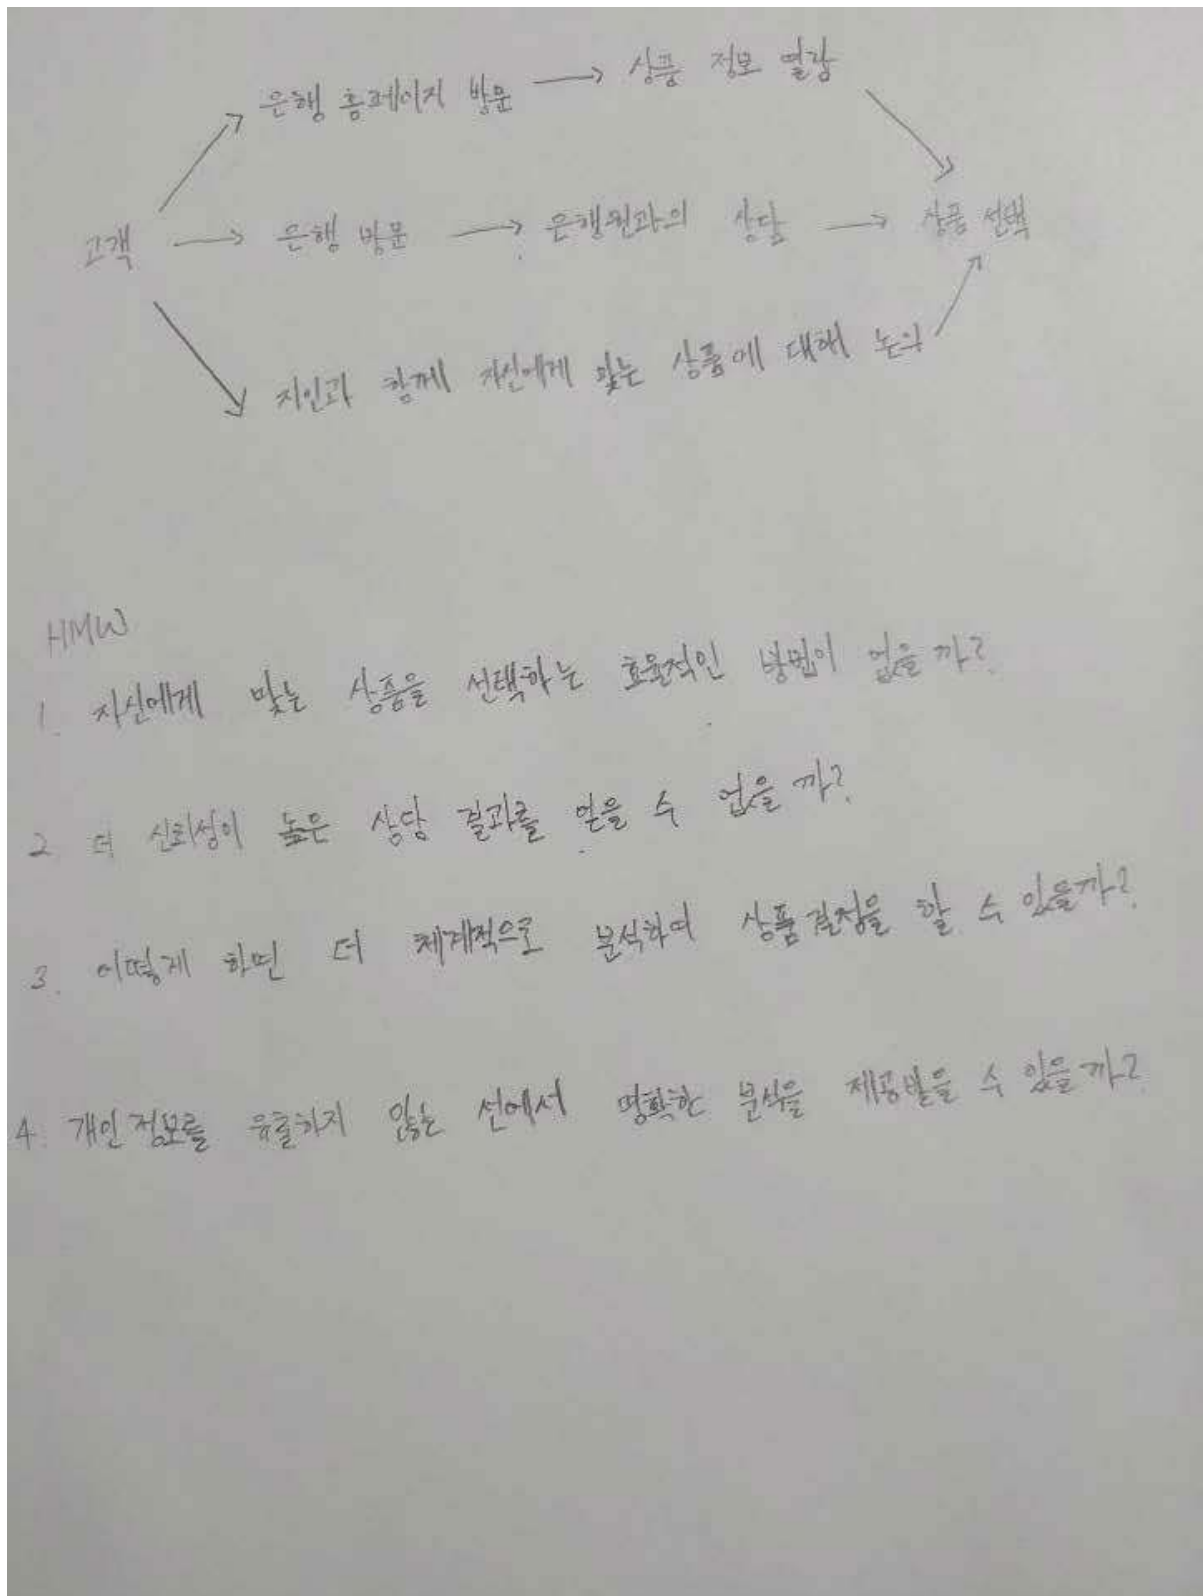 은행 홈페이지 방문 → 상품 정보 열람
고객 → 은행 방문 → 은행원과의 상담 → 상품 선택
지인과 함께 자신에게 맞는 상품에 대해 논의
HMW
1. 자신에게 맞는 상품을 선택하는 효율적인 방법이 없을까?
2 더 신뢰성이 높은 상담 결과를 얻을 수 없을까?
3. 어떻게 하면 더 체계적으로 분석하여 상품결정을 할 수 있을까?
4. 개인정보를 유출하지 않는 선에서 명확한 분석을 제공받을 수 있을까?